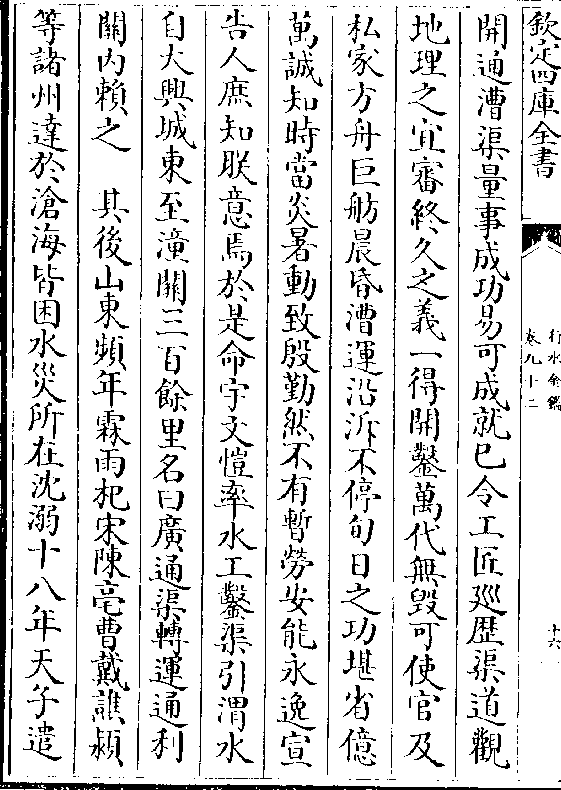 欽定四庫全書
行水金鑑
卷九十二
十六
開通漕渠量事成功易可成就已令工匠廵歴渠道觀
地理之宜審終久之義一得開鑿萬代無毀可使官及
私家方舟巨舫晨昏漕運沿泝不停旬日之功堪省億
萬誠知時當炎暑動致殷勤然不有暫勞安能永逸宣
告人庶知朕意焉於是命宇文愷率水工鑿渠引渭水
自大興城東至潼關三百餘里名曰廣通渠轉運通利
關内賴之　其後山東頻年霖雨杞宋陳亳曹戴譙潁
等諸州達於滄海皆困水災所在沈溺十八年天子遣